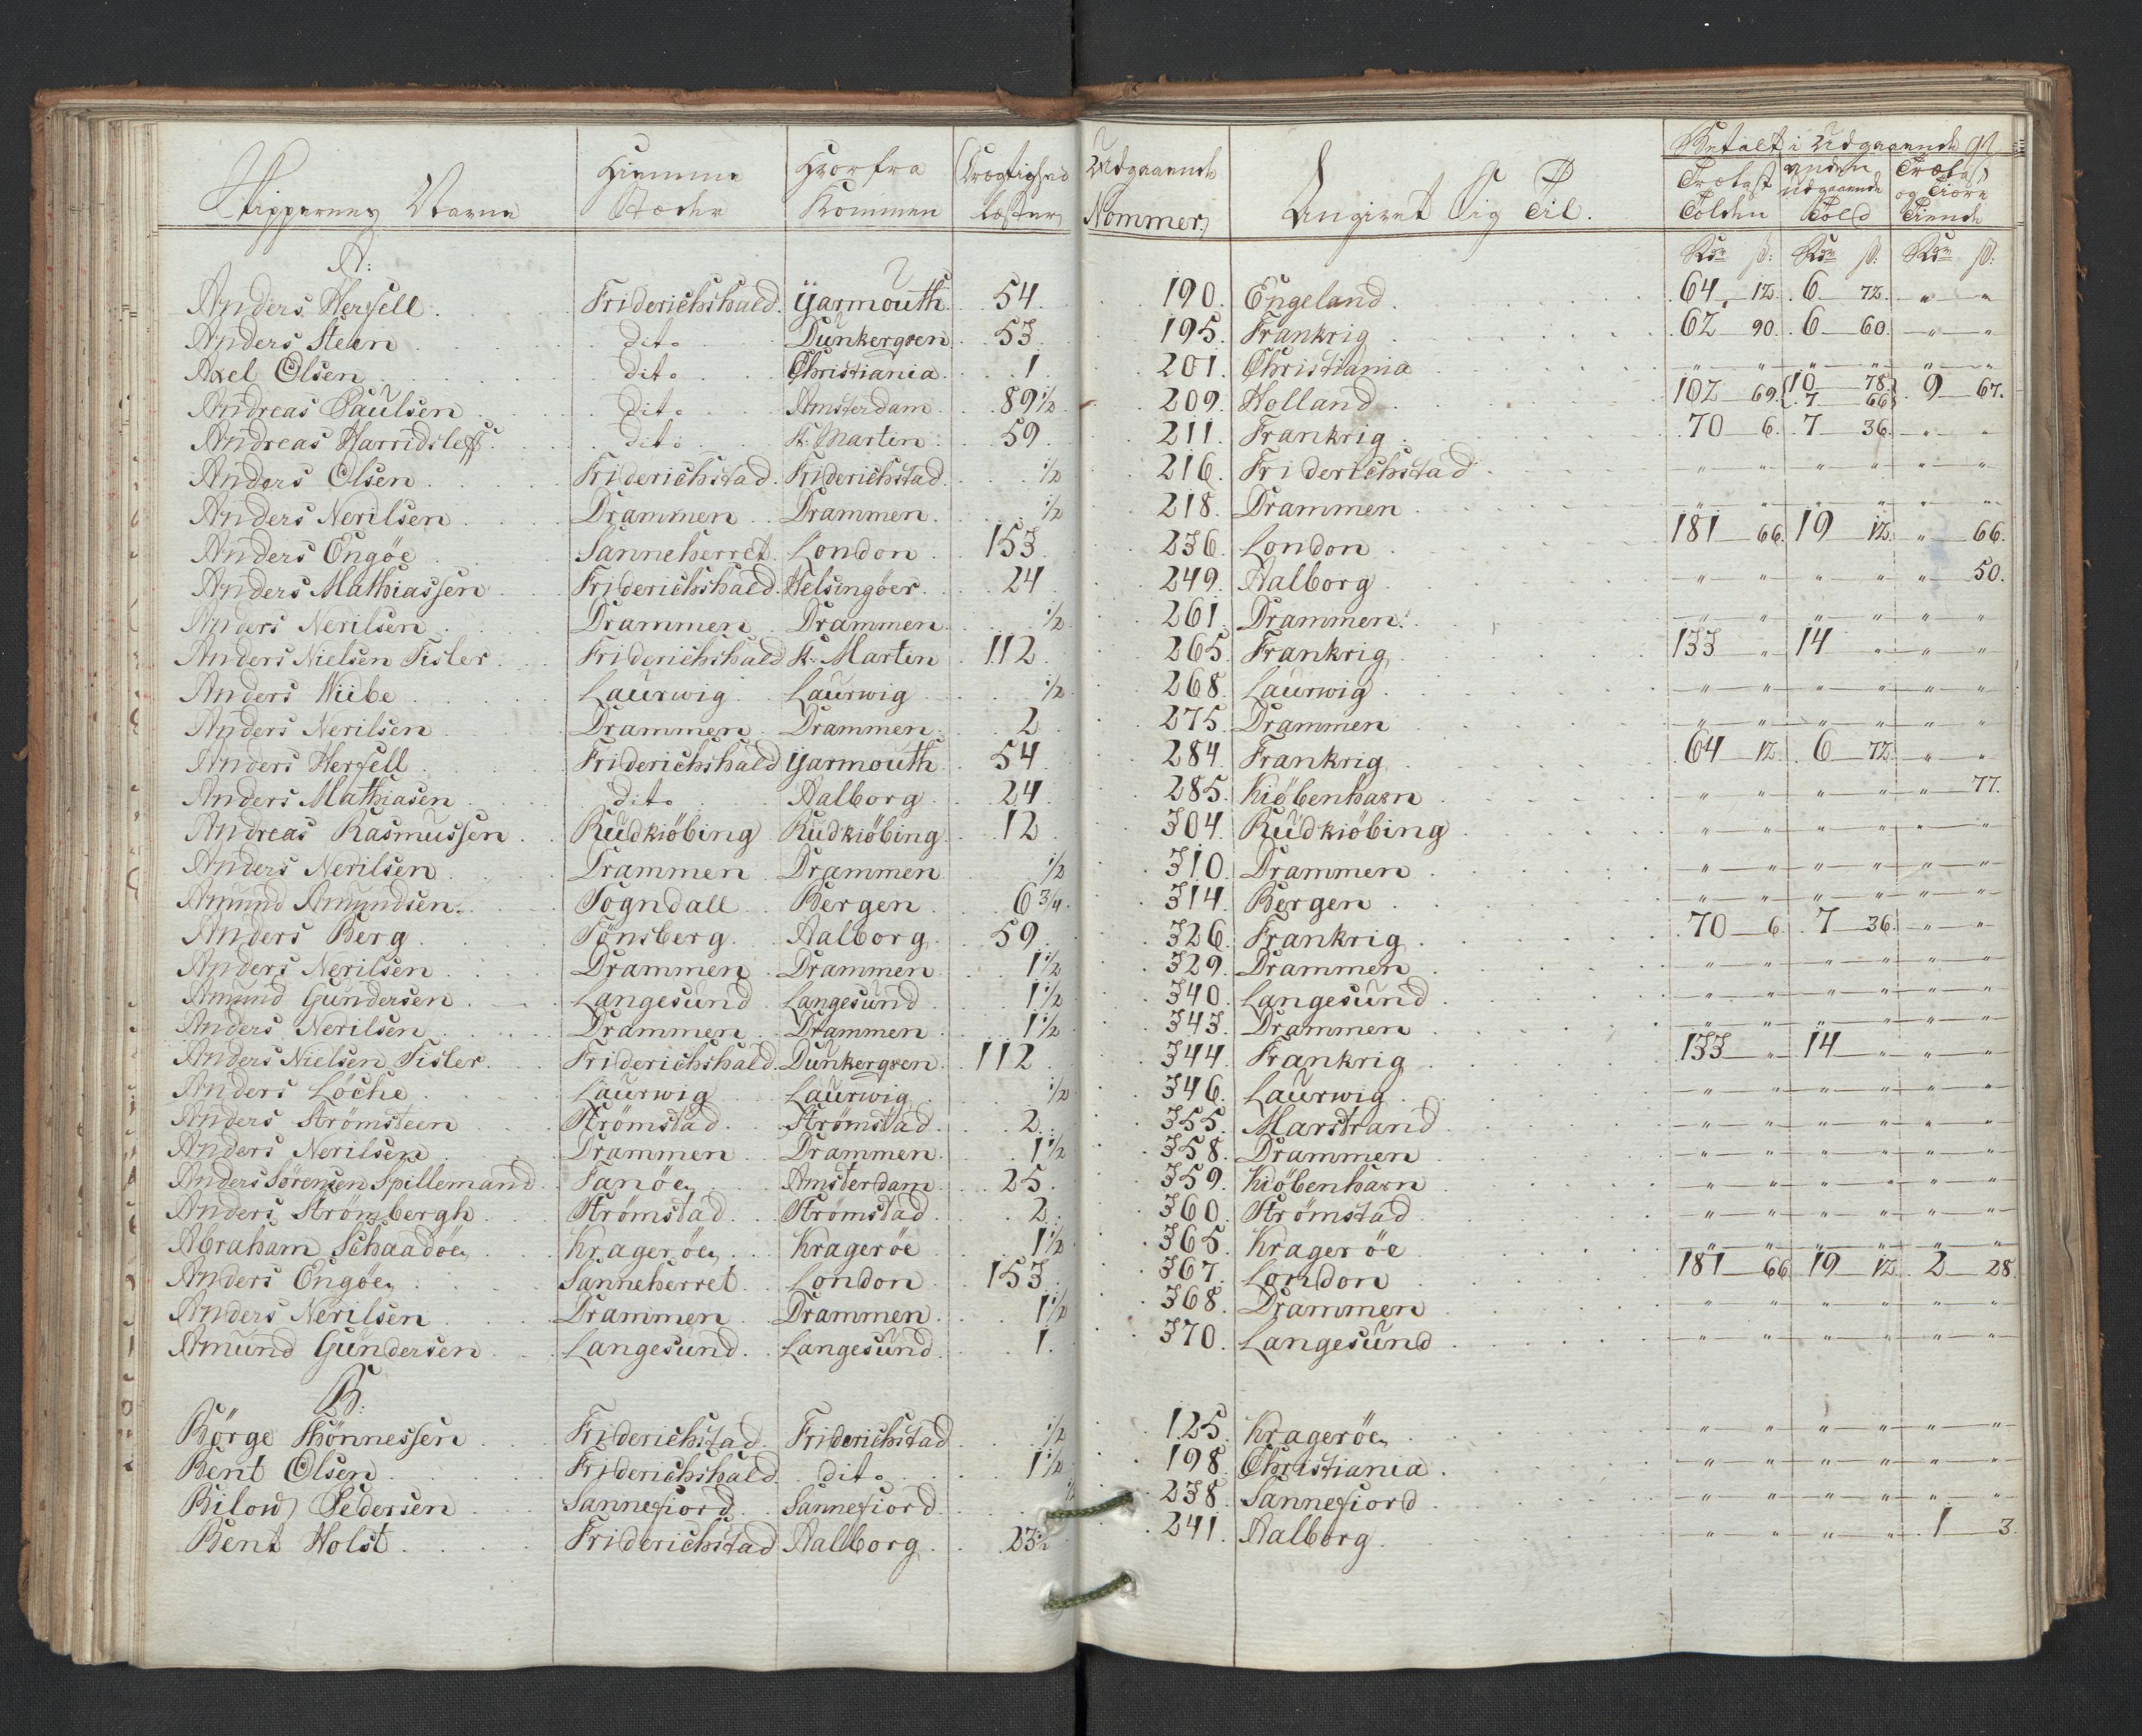 Skippernes Navne | Hiemme Stæder | Hvorfra Kommen | Drægtighed Læster | Udgaaende Nommer | Angivet Sig Til. | Betalt i Udgaaende
Trælast Tolden | anden udgaaende Told | Trælast og Tiære Tiende
A: | Rdr ß: | Rdr ß: | Rdr ß:
Anders Hersell | Friderichshald | Yarmouth | 54 | 190. | Engeland | 64 12 | 6 72 | " "
Anders Steen | dito | Dunkerqven | 53 | 195. | Frankrig | 62 90 | 6 60 | " "
Axel Olsen | dito | Christiania | 1 | 201. | Christiania | " " | " " | " "
Andreas Paulsen | dito | Amsterdam | 89 1/2 | 209. | Holland | 102 69 | 10 78 7 66 | 9 67.
Andreas Harridsleff | dito | St: Martin | 59 | 211. | Frankrig | 70 6 | 7 36 | " "
Anders Olsen | Friderichstad | Friderichstad | 1/2 | 216. | Friderichstad | " " | " " | " "
Anders Nerilsen | Drammen | Drammen | 1/2 | 218. | Drammen | " " | " " | " "
Anders Engöe | Sanneherret | London | 153 | 236. | London | 181 66 | 19 12 | " 66.
Anders Mathiassen | Friderichshald | Helsingöer | 24 | 249. | Aalborg | " " | " " | " 50.
Anders Nerilsen | Drammen | Drammen | 1/2 | 261. | Drammen | " " | " " | " "
Anders Nielsen Tisler | Friderichshald | St: Martin | 112 | 265. | Frankrig | 133 " | 14 " | " "
Anders Wiibe | Laurwig | Laurwig | 1/2 | 268. | Laurwig | " " | " " | " "
Anders Nerilsen | Drammen | Drammen | 2 | 275. | Drammen | " " | " " | " "
Anders Hersell | Friderichshald | Yarmouth | 54 | 284. | Frankrig | 64 12 | 6 72 | " "
Anders Mathiasen | dito | Aalborg | 24 | 285. | Kiöbenhavn | " " | " " | " 77.
Andreas Rasmussen | Rudkiöbing | Rudkiöbing | 12 | 304. | Rudkiöbing | " " | " " | " "
Anders Nerilsen | Drammen | Drammen | 1/2 | 310. | Drammen | " " | " " | " "
Amund Amundsen | Sogndall | Bergen | 6 3/4 | 314. | Bergen | " " | " " | " "
Anders Berg | Tönsberg | Aalborg | 59 | 326. | Frankrig | 70 6 | 7 36 | " "
Anders Nerilsen | Drammen | Drammen | 1 1/2 | 329. | Drammen | " " | " " | " "
Amund Gundersen | Langesund | Langesund | 1 1/2 | 340. | Langesund | " " | " " | " "
Anders Nerilsen | Drammen | Drammen | 1 1/2 | 343. | Drammen | " " | " " | " "
Anders Nielsen Tisler | Friderichshald | Dunkerqven | 112 | 344. | Frankrig | 133 " | 14 " | " "
Anders Löche | Laurwig | Laurwig | 1/2 | 346. | Laurwig | " " | " " | " "
Anders Strömsteen | Strömstad | Strömstad | 2 | 355. | Marstrand | " " | " " | " "
Anders Nerilsen | Drammen | Drammen | 1 1/2 | 358. | Drammen | " " | " " | " "
Anders Sörensen Spillemand | Fanöe | Amsterdam | 25 | 359. | Kiöbenhavn | " " | " " | " "
Anders Strömbergh | Strömstad | Strömstad | 2 | 360. | Strömstad | " " | " " | " "
Abraham Schaadöe | Krageröe | Krageröe | 1 1/2 | 365. | Krageröe | " " | " " | " "
Anders Engöe | Sanneherret | London | 153 | 367. | London | 181 66 | 19 12 | 2 28.
Anders Nerilsen | Drammen | Drammen | 1 1/2 | 368. | Drammen | " " | " " | " "
Amund Gundersen | Langesund | Langesund | 1. | 370. | Langesund | " " | " " | " "
B:
Börge Thönnessen | Friderichstad | Friderichstad | 1/2 | 125. | Krageröe | " " | " " | " "
Bent Olsen | Friderichshald | dito | 1 1/2 | 198. | Christiania | " " | " " | " "
Bilow Pedersen | Sannefiord | Sannefiord | 1/2 | 238. | Sannefiord | " " | " " | " "
Bent Holst | Friderichstad | Aalborg | 23 1/2 | 241. | Aalborg | " " | " " | 1 3.